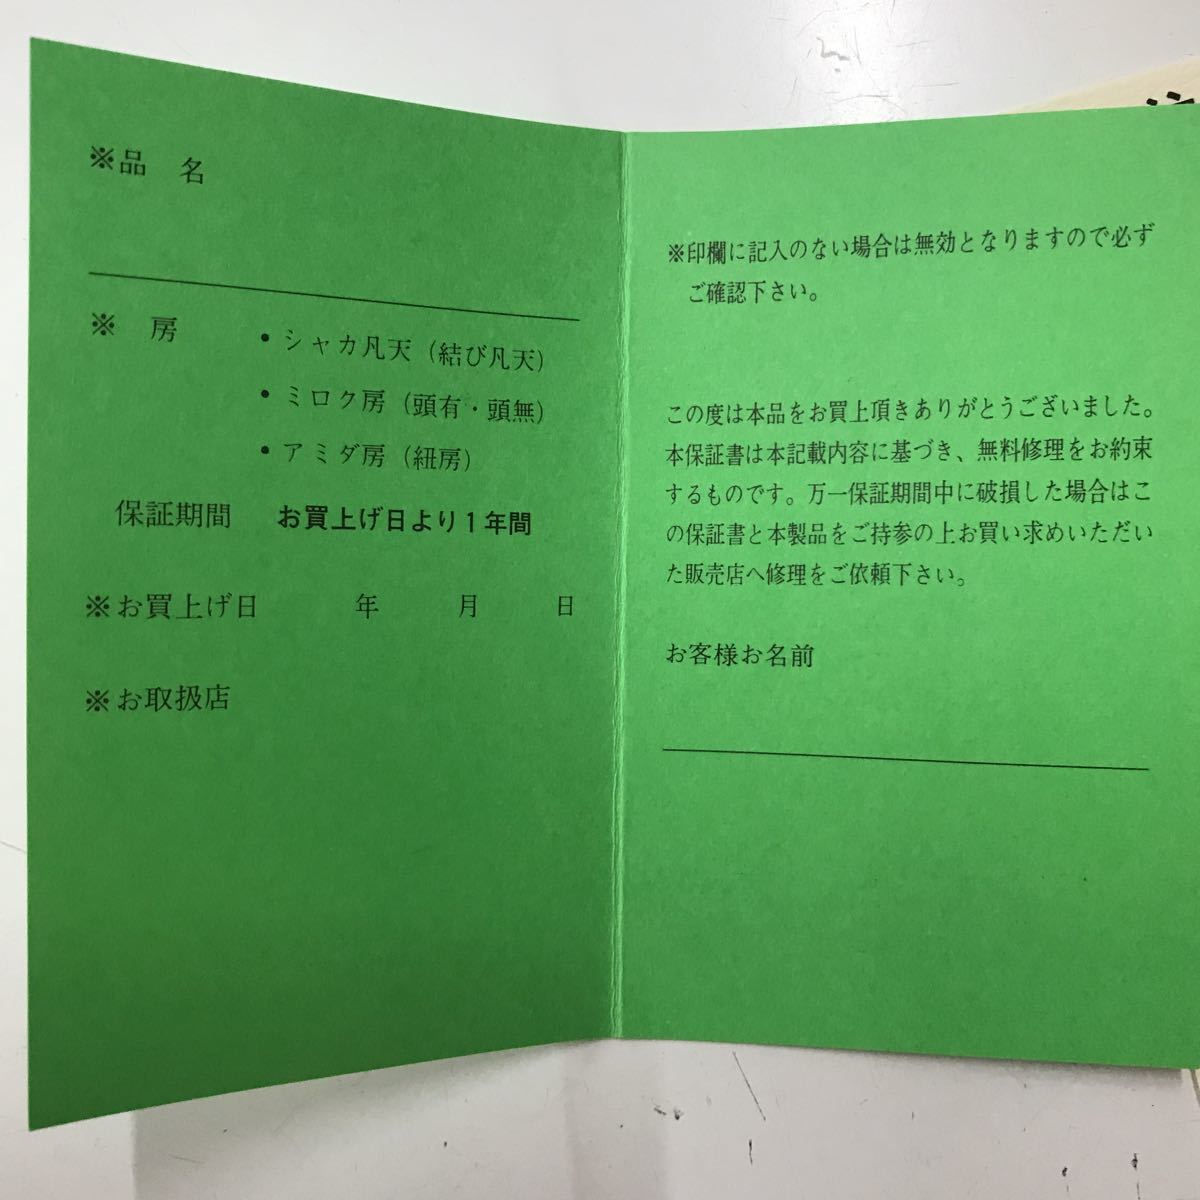 ※品 名
※ 房
• シャカ凡天（結び凡天）
• ミロク房（頭有・頭無）
• アミダ房（紐房）
保証期間 お買上げ日より1年間
※お買上げ日 年 月 日
※お取扱店
※印欄に記入のない場合は無効となりますので必ず
ご確認下さい。
この度は本品をお買上頂きありがとうございました。
本保証書は本記載内容に基づき、無料修理をお約束
するものです。万一保証期間中に破損した場合はこ
の保証書と本製品をご持参の上お買い求めいただい
た販売店へ修理をご依頼下さい。
お客様お名前